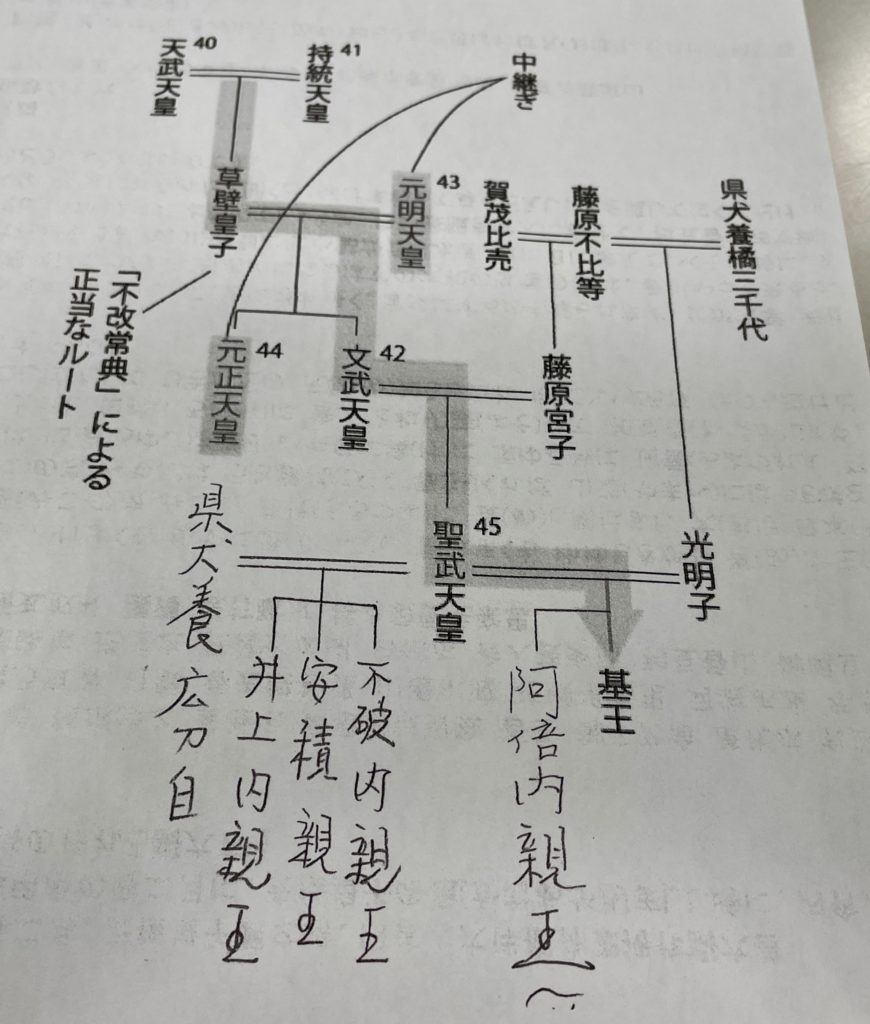 40
天武天皇
41
持統天皇
中継ぎ
草壁皇子
43
元明天皇
賀茂比売
藤原不比等
県犬養橘三千代
「不改常典」による
正当なルート
44
元正天皇
42
文武天皇
藤原宮子
45
聖武天皇
光明子
基王
県犬養広刀自
井上内親王
安積親王
不破内親王
阿倍内親王